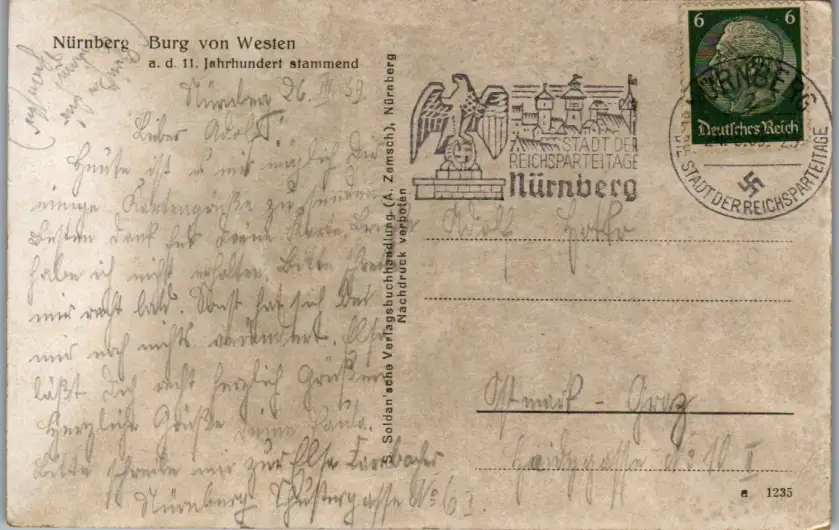 Nürnberg Burg von Westen
a. d. 11. Jahrhundert stammend
Nürnberg 26. III. 39
Lieber Adolf!
Heute ist es mir möglich Dir
einige Kartengrüße zu
Besten Dank für Deine Karte, Brief
habe ich nicht erhalten. Bitte schreibe
mir recht bald. Sonst hat sich bei
mir noch nichts verändert. Else
läßt Dich recht herzlich Grüßen
Herzliche Grüße Deine Paula.
Bitte schreibe mir zur Else
Nürnberg Schustergasse No 6 I.
S. Soldan'sche Verlagsbuchhandlung (A. Zemsch), Nürnberg
Nachdruck verboten
STADT DER
REICHSPARTEITAGE
Nürnberg
6 6
Deutsches Reich
NÜRNBERG
2
DIE STADT DER REICHSPARTEITAGE
Adolf
Ostmark - Graz
Haidgasse No 10 II
a 1235